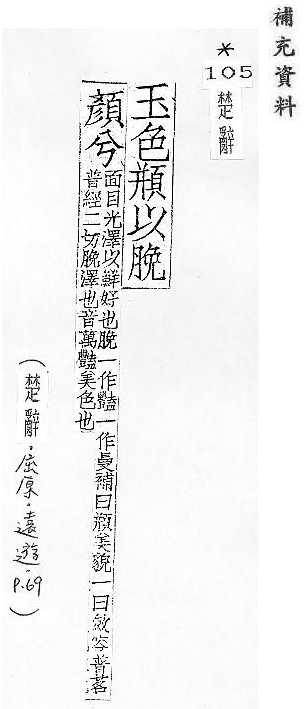 補充資料
*
105
楚辭
玉色頩以脕
顏兮
面目光澤以鮮好也脕一作豔一作曼補曰頩美貌一曰斂容普茗
普經二切脕澤也音萬豔美色也
(楚辭·屈原·遠遊·P.69)